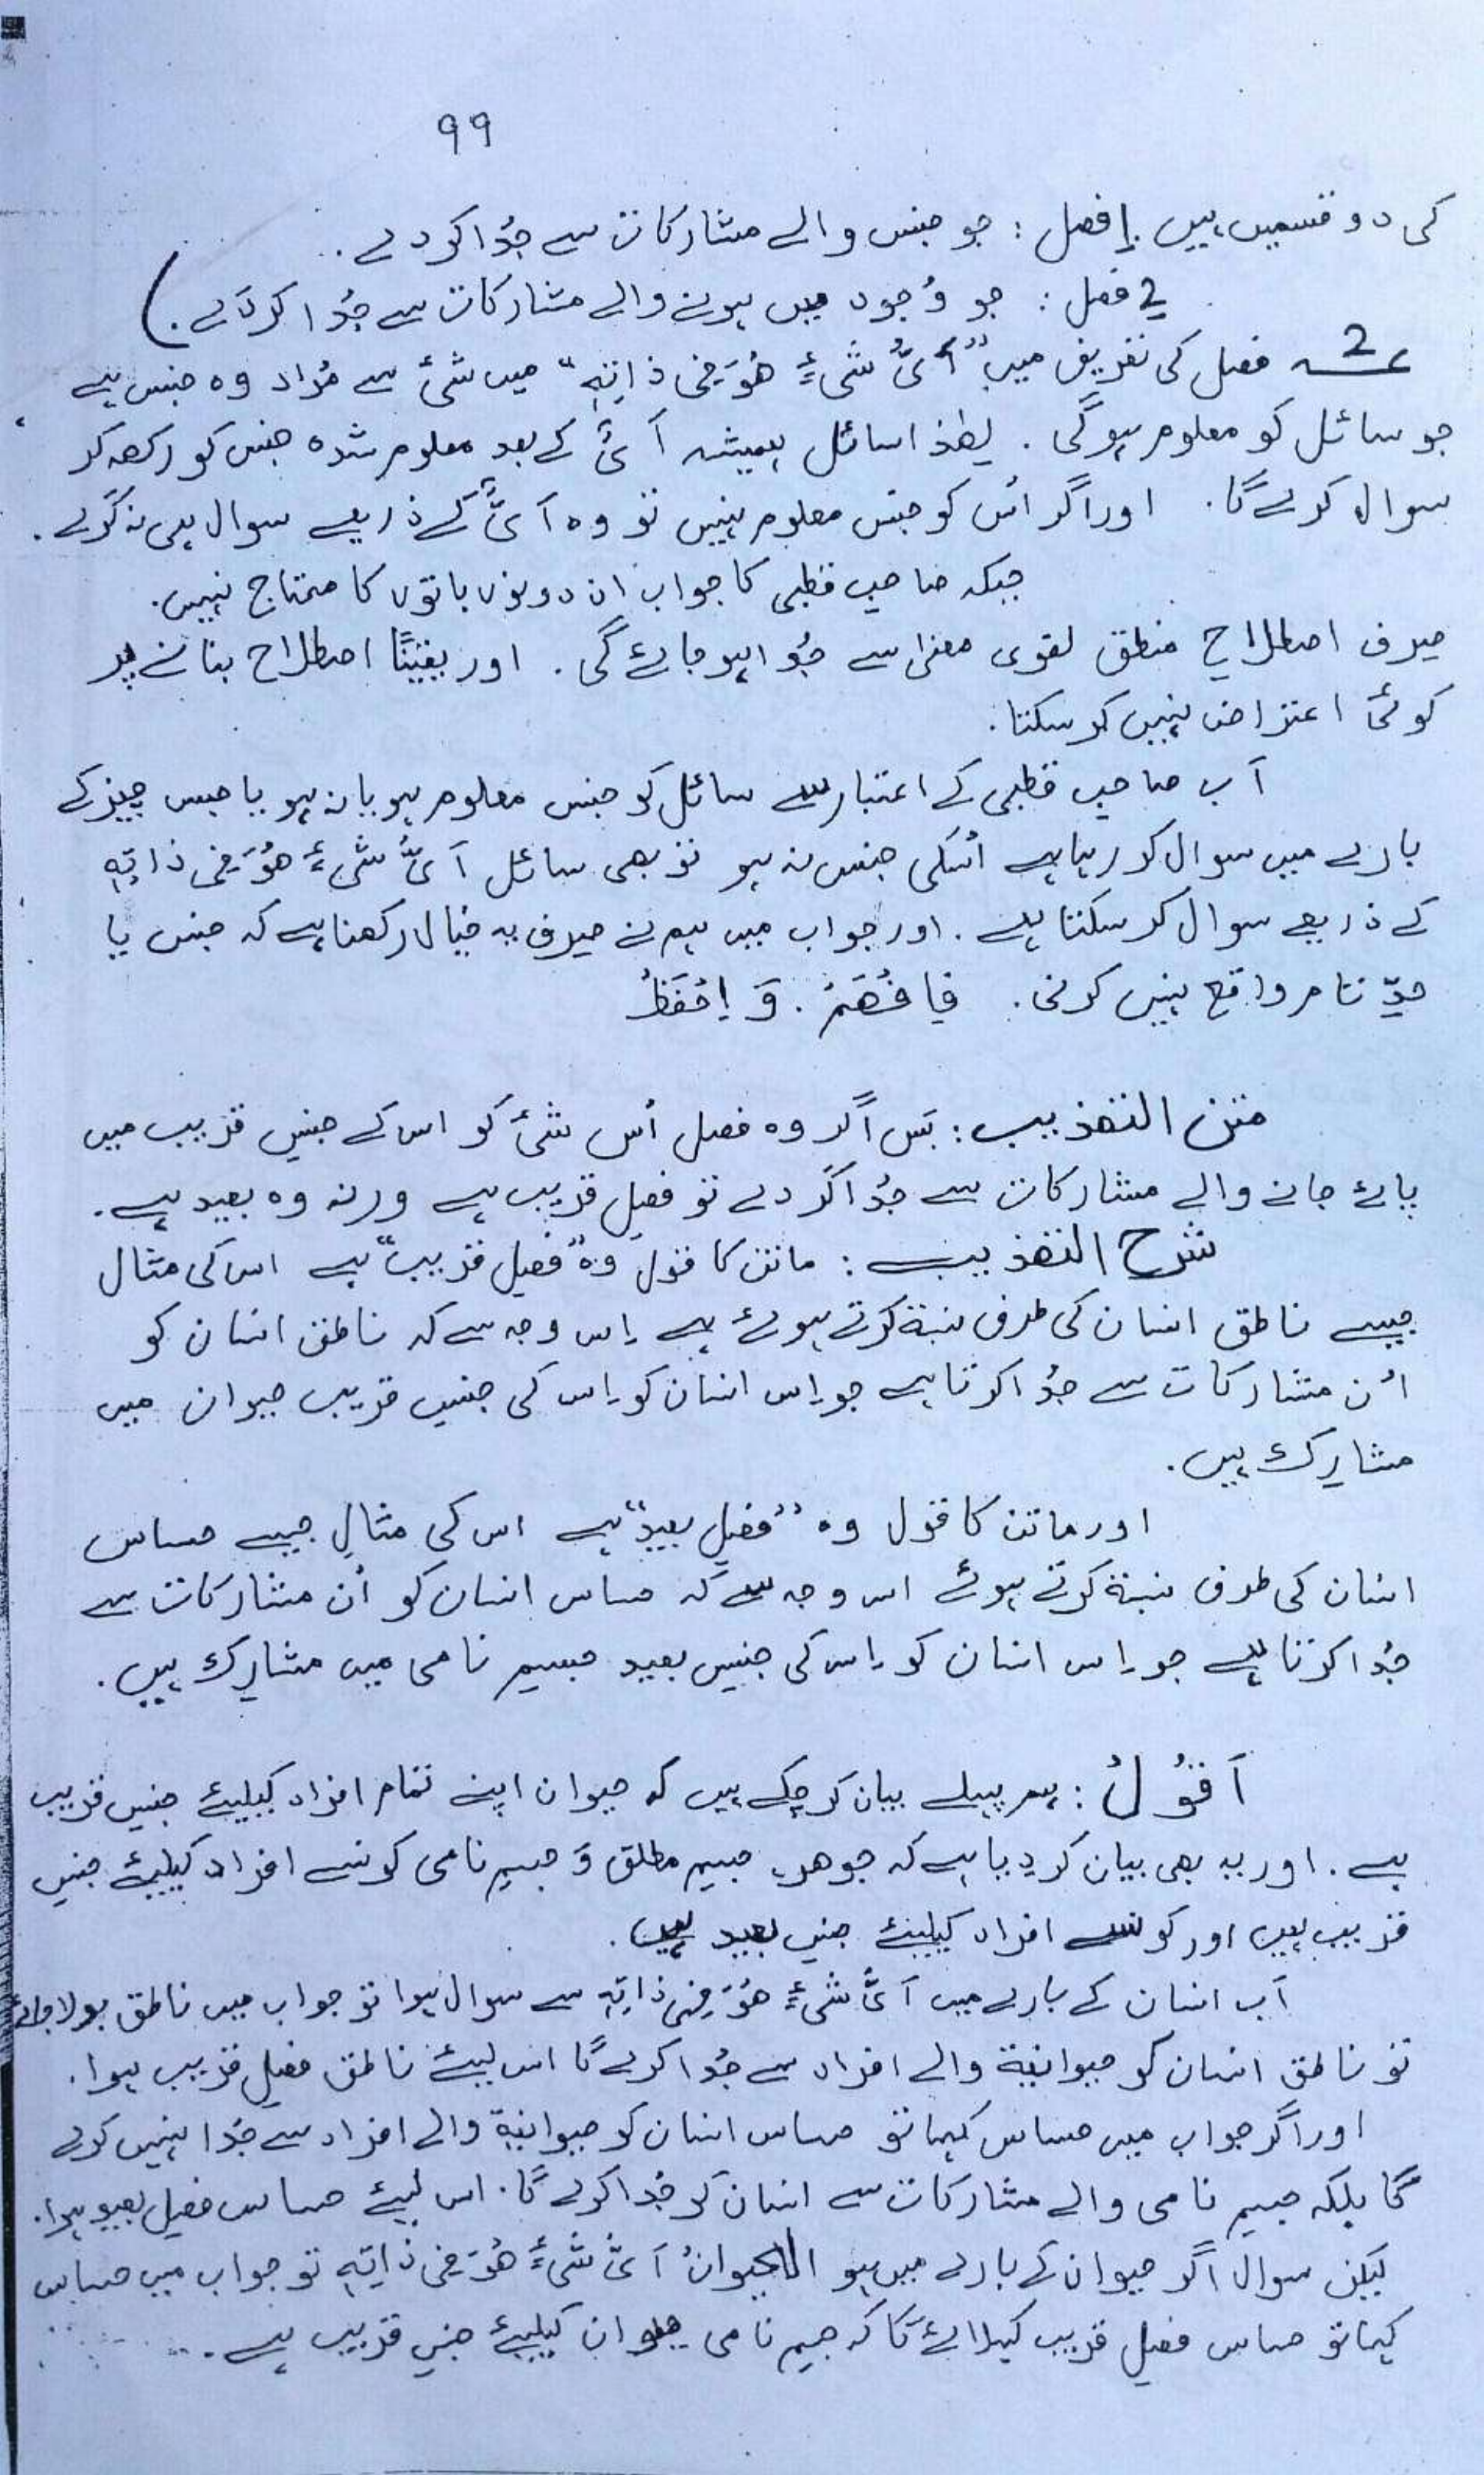 ۹۹
کی دو قسمیں ہیں 1 فصل : جو جنس والے مشارکات سے جُدا کر دے .
2 فصل : جو وُجود میں ہونے والے مشارکات سے جُدا کر دَے . )
2 فصل کی تعریف میں "اَیُّ شیءٍ ھُوَ فِی ذاتِہٖ" میں شئ سے مُراد وہ جنس ہے
جو سائل کو معلوم ہوگی . لھٰذا سائل ہمیشہ اَیُّ کے بعد معلوم شدہ جنس کو رکھ کر
سوال کرے گا . اور اگر اُس کو جنس معلوم نہیں تو وہ اَیُّ کے ذریعے سوال ہی نہ کرے .
جبکہ صاحبِ قطبی کا جواب ان دونوں باتوں کا محتاج نہیں .
صرف اصطلاحِ منطق لغوی معنیٰ سے جُدا ہو جائے گی . اور یقینًا اصطلاح بنانے پر
کوئی اعتراض نہیں کر سکتا .
اَب صاحبِ قطبی کے اعتبار سے سائل کو جنس معلوم ہو یا نہ ہو یا جس چیز کے
بارے میں سوال کر رہا ہے اُسکی جنس نہ ہو تو بھی سائل اَیُّ شیءٍ ھُوَ فِی ذاتِہٖ
کے ذریعے سوال کر سکتا ہے . اور جواب میں ہم نے صرف یہ خیال رکھنا ہے کہ جنس یا
حدِّ تام واقع نہیں کرنی . فَافْہَمْ . وَ اِحْفَظْ
متن التھذیب : بَس اگر وہ فصل اُس شئ کو اس کے جنسِ قریب میں
پائے جانے والے مشارکات سے جُدا کر دے تو فصلِ قریب ہے ورنہ وہ بعید ہے .
شرح التھذیب : ماتن کا قول وہ "فصلِ قریب" ہے اس کی مثال
جیسے ناطق انسان کی طرف نسبۃ کرتے ہوئے ہے اِس وجہ سے کہ ناطق انسان کو
اُن مشارکات سے جُدا کرتا ہے جو اِس انسان کو اِس کی جنسِ قریب حیوان میں
مشارِک ہیں .
اور ماتن کا قول وہ "فصلِ بعید" ہے اس کی مثال جیسے حساس
انسان کی طرف نسبۃ کرتے ہوئے اس وجہ سے کہ حساس انسان کو اُن مشارکات سے
جُدا کرتا ہے جو اِس انسان کو اِس کی جنسِ بعید جسمِ نامی میں مشارِک ہیں .
اَقُوْلُ : ہم پہلے بیان کر چکے ہیں کہ حیوان اپنے تمام افراد کیلیئے جنسِ قریب
ہے . اور یہ بھی بیان کر دیا ہے کہ جوھر، جسمِ مطلق وَ جسمِ نامی کونسے افراد کیلیئے جنسِ
قریب ہیں اور کونسے افراد کیلیئے جنسِ بعید ہیں .
اَب انسان کے بارے میں اَیُّ شیءٍ ھُوَ فِی ذاتِہٖ سے سوال ہوا تو جواب میں ناطق بولا جائے
تو ناطق انسان کو حیوانیۃ والے افراد سے جُدا کرے گا اس لیئے ناطق فصلِ قریب ہوا .
اور اگر جواب میں حساس کہا تو حساس انسان کو حیوانیۃ والے افراد سے جُدا نہیں کرے
گا بلکہ جسمِ نامی والے مشارکات سے انسان کو جُدا کرے گا . اس لیئے حساس فصلِ بعید ہوا .
لیکن سوال اگر حیوان کے بارے میں ہو الحیوانُ اَیُّ شیءٍ ھُوَ فِی ذاتِہٖ تو جواب میں حساس
کہا تو حساس فصلِ قریب کہلائے گا کہ جسمِ نامی حیوان کیلیئے جنسِ قریب ہے .